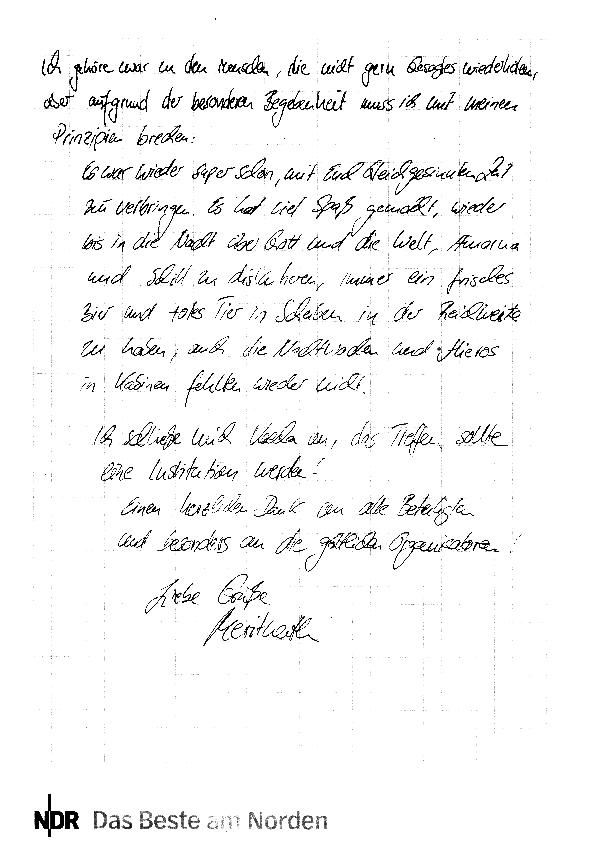 Ich gehöre zwar zu den Menschen, die nicht gern Gesagtes wiederholen,
aber aufgrund der besonderen Begebenheit muss ich mit meinen
Prinzipien brechen:
Es war wieder super schön, mit Euch Gleichgesinnten Zeit
zu verbringen. Es hat viel Spaß gemacht, wieder
bis in die Nacht über Gott und die Welt, Amarna
und Schiff zu diskutieren, immer ein frisches
Bier und totes Tier in Scheiben in der Reichweite
zu haben, auch die und Hieros
in fehlten wieder nicht.
Ich schließe mich an, das Treffen sollte
eine Institution werden!
Einen herzlichen Dank an alle Beteiligten
und besonders an die göttlichen Organisatoren!
Liebe Grüße
NDR Das Beste am Norden